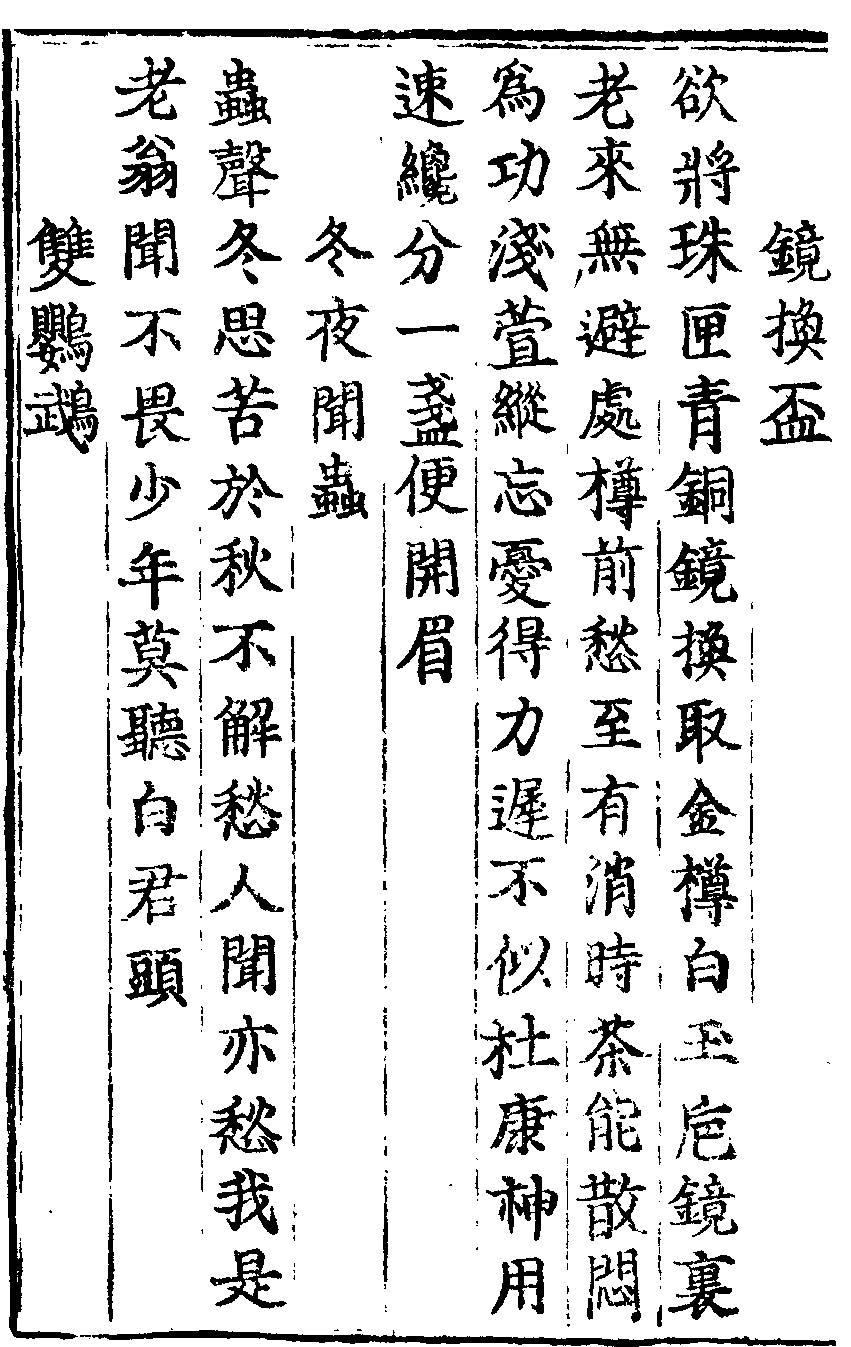 鏡換盃
欲將珠匣青銅鏡換取金樽白玉巵鏡裏
老來無避處樽前愁至有消時茶能散悶
爲功淺萱縱忘憂得力遲不似杜康神用
速纔分一盞便開眉
冬夜聞蟲
蟲聲冬思苦於秋不解愁人聞亦愁我是
老翁聞不畏少年莫聽白君頭
雙鸚鵡